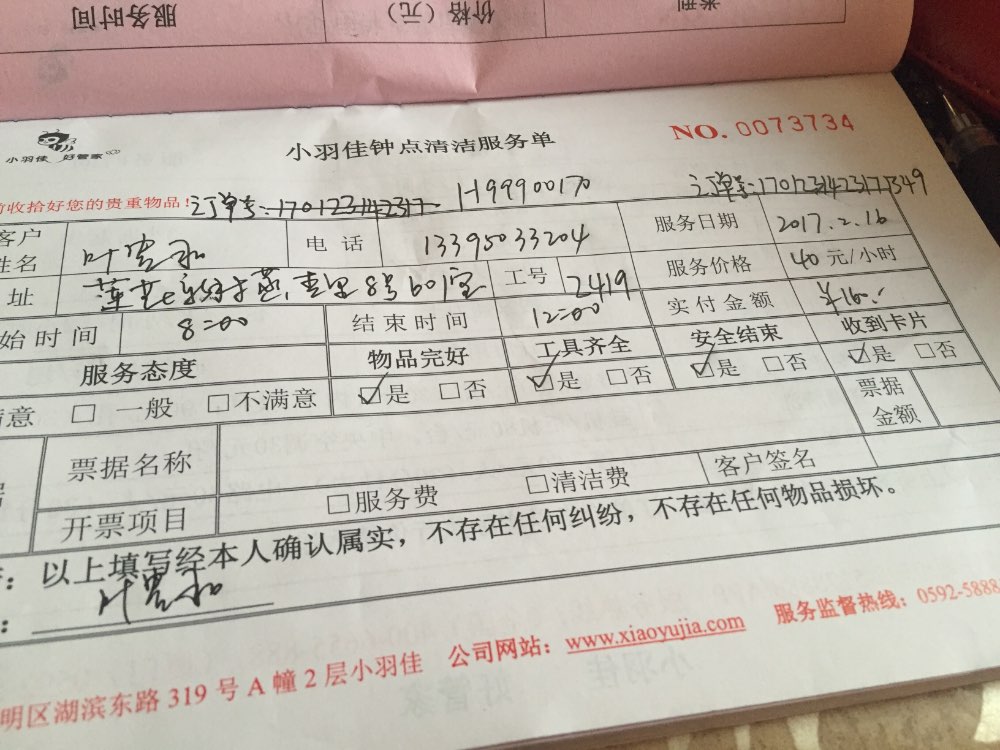 服务时间 价格（元） 类别
小羽佳 好管家
小羽佳钟点清洁服务单
NO. 0073734
收拾好您的贵重物品！ 订单号:170123142317 1-199900170 订单号:17012314231771349
客户姓名 叶 电话 13395033204 服务日期 2017.2.16
址 8号601室 工号 2419 服务价格 40元/小时
始时间 8:00 结束时间 12:00 实付金额 ¥160.
服务态度 物品完好 工具齐全 安全结束 收到卡片
满意 □ 一般 □不满意 ☑是 □否 ☑是 □否 ☑是 □否 ☑是 □否
票据名称 票据金额
开票项目 □服务费 □清洁费 客户签名
：以上填写经本人确认属实，不存在任何纠纷，不存在任何物品损坏。
： 叶
明区湖滨东路319号A幢2层小羽佳 公司网站：www.xiaoyujia.com 服务监督热线：0592-5888